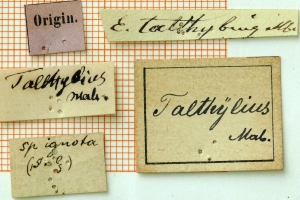 Origin.
E. talthybius Mb.
Talthylius
Mab.
Talthÿlius
Mab.
sp ignota